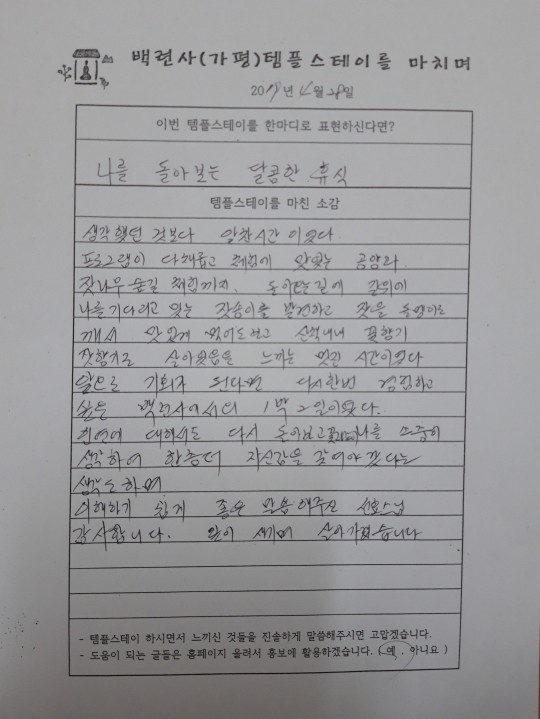 백련사(가평)템플스테이를 마치며
2019년 4월 28일
이번 템플스테이를 한마디로 표현하신다면?
나를 돌아보는 달콤한 휴식
템플스테이를 마친 소감
생각했던 것보다 알찬시간 이였다.
프로그램이 다채롭고 체험에 맛있는 공양과
잣나무 숲길 체험까지. 돌아오는길에 길위에
나를 기다리고 있는 잣송이를 발견하고 잣을 돌멩이로
깨서 맛있게 먹어도보고 산책내내 꽃향기
잣향기로 살아있음을 느끼는 멋진 시간이였다
앞으로 기회가 된다면 다시한번 경험하고
싶은 백련사에서의 1박 2일이였다.
인연에 대해서도 다시 돌아보고 나를 소중히
생각하여 한층더 자신감을 갖어야 겠다는
생각도하며
이해하기 쉽게 좋은 말씀해주신 스님
감사합니다. 깊이 새기며 살아가겠습니다
- 템플스테이 하시면서 느끼신 것들을 진솔하게 말씀해주시면 고맙겠습니다.
- 도움이 되는 글들은 홈페이지 올려서 홍보에 활용하겠습니다. ( 예 , 아니요 )